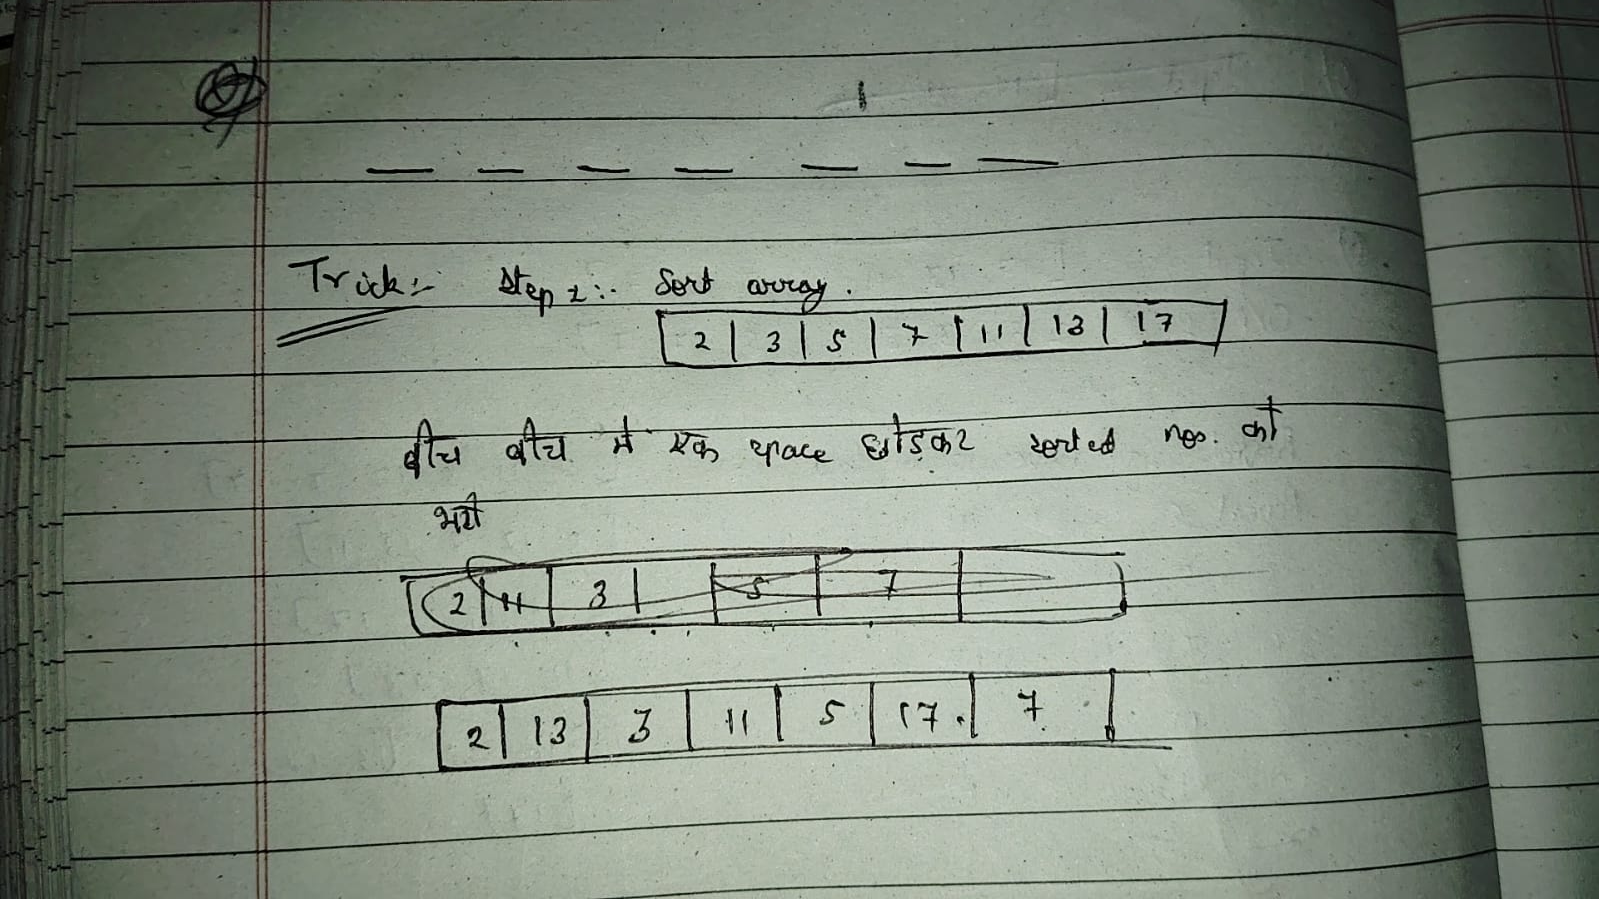 Trick:- Step 1:- Sort array.
2 | 3 | 5 | 7 | 11 | 13 | 17
बीच बीच में एक space छोड़कर sorted nos. को
भरो
2 | 11 | 3 | | 5 | 7 |
2 | 13 | 3 | 11 | 5 | 17 | 7